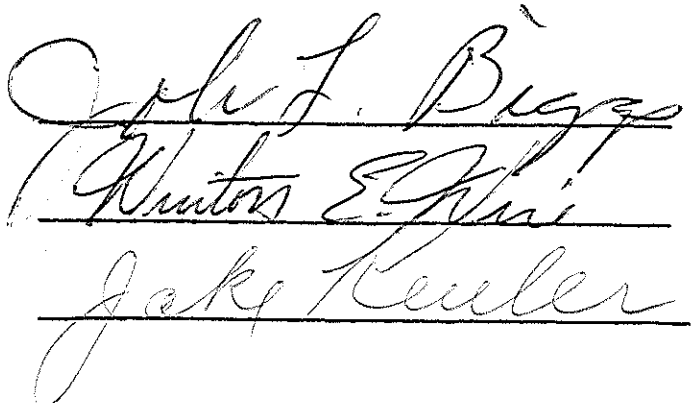 John L. Biggs
Winton E. Wire
Jake Keuler